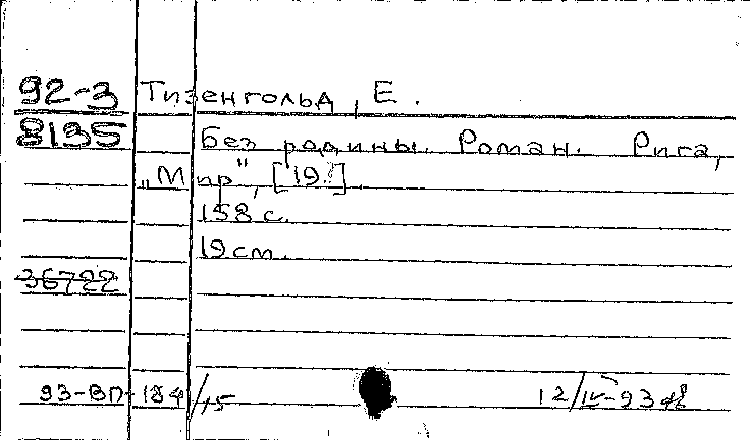 92-3 Тизенгольд, Е.
8135 Без родины. Роман. Рига,
„Мир", [19.?]
158 с.
19 см.
36722
93-ВП-184/15 12/IV-93